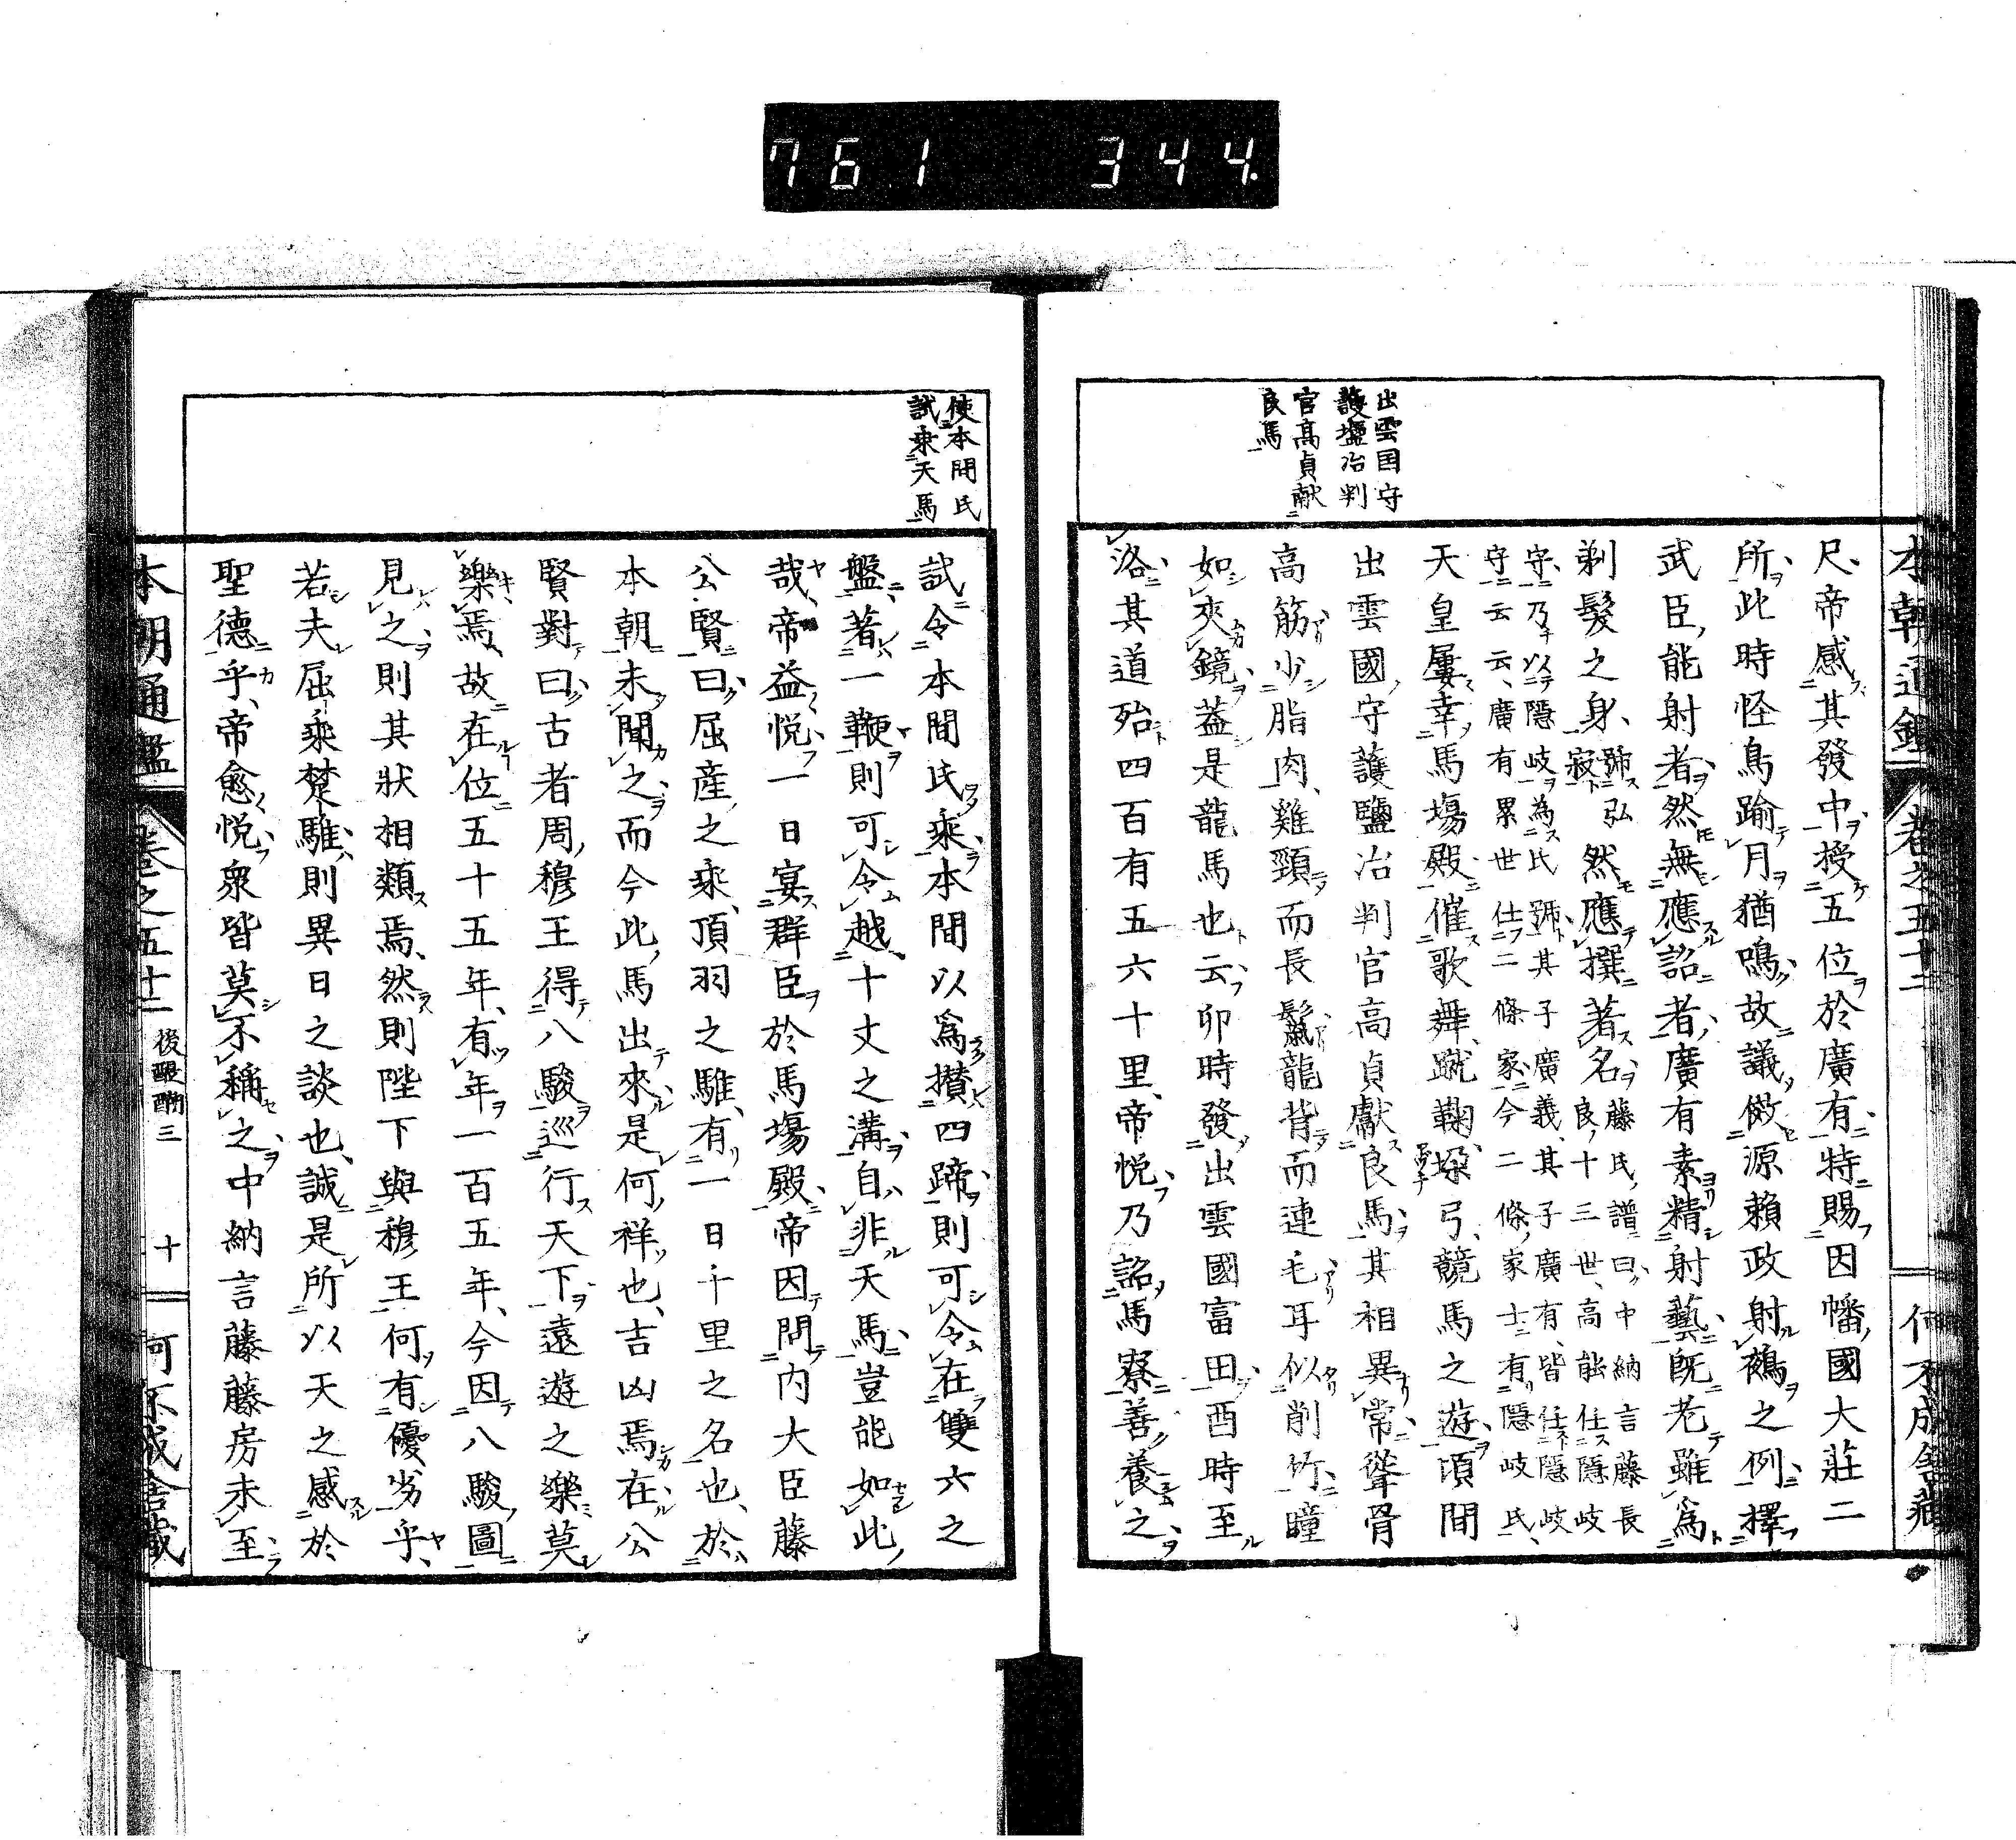 761 344.
本朝通鑑 卷之五十二 何不成舍藏
出雲国守
護塩冶判
官髙貞献
良馬
尺帝感其發中授五位於廣有特賜因幡國大莊二
所此時怪鳥踰月猶鳴故議倣源賴政射鵺之例擇
武臣能射者然無應詔者廣有素精射藝既老雖爲
剃髮之身號弘
寂然應撰著名藤氏譜曰中納言藤長
良十三世高能任隱岐
守乃以隱岐為氏號其子廣義其子廣有皆任隱岐
守云云廣有累世仕二條家今二條家士有隱岐氏
天皇屢幸馬塲殿催歌舞蹴鞠垜弓競馬之遊頃間
出雲國守護鹽冶判官高貞獻良馬其相異常聳骨
高筋少脂肉雞頸而長鬣龍背而連毛耳似削竹瞳
如夾鏡葢是龍馬也云卯時發出雲國富田酉時至
洛其道殆四百有五六十里帝悦乃詔馬寮善養之
使本間氏
試乘天馬
試令本間氏乘本間以爲攅四蹄則可令在雙六之
盤著一鞭則可令越十丈之溝自非天馬豈能如此
哉帝益悦一日宴群臣於馬塲殿帝因問內大臣藤
公賢曰屈産之乘項羽之騅有一日千里之名也於
本朝未聞之而今此馬出來是何祥也吉凶焉在公
賢對曰古者周穆王得八駿巡行天下遠遊之樂莫
樂焉故在位五十五年有年一百五年今因八駿圖
見之則其狀相類焉然則陛下與穆王何有優劣乎
若夫屈乘楚騅則異日之談也誠是所以天之感於
聖德乎帝愈悦衆皆莫不稱之中納言藤藤房未至
本朝通鑑 卷之五十二 後醍醐三 十 何不成舍藏